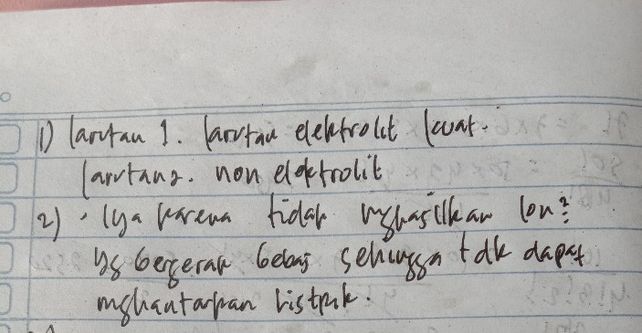 1) larutan 1. larutan elektrolit kuat.
larutan 2. non elektrolit
2) • Iya karena tidak mghasilkan ion²
yg bergerak bebas sehingga tdk dapat
mghantarkan listrik.